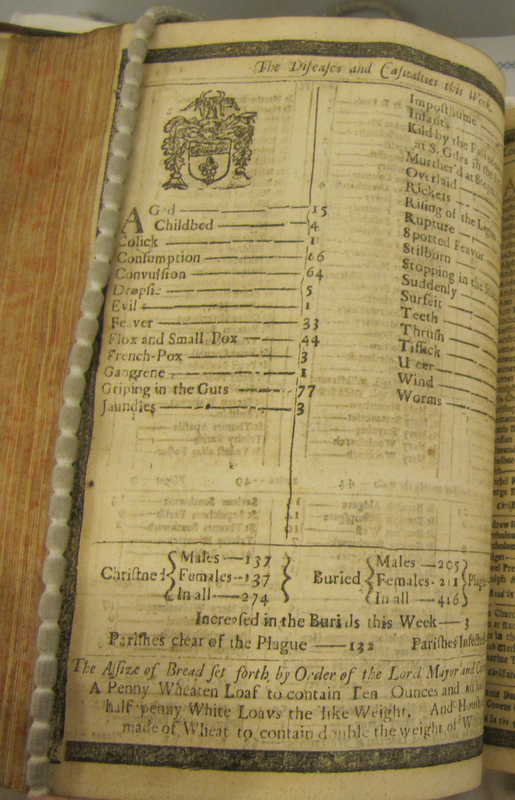 The Diseases and Casualties this Week.
AGed 15
Childbed 4
Colick 1
Consumption 66
Convulsion 64
Dropsie 5
Evil 1
Feaver 33
Flox and Small Pox 44
French-Pox 3
Gangrene 1
Griping in the Guts 77
Jaundies 3
Imposthume
Infants
Kild by the Fall
at S. Giles in the
Murther'd at
Overlaid
Rickets
Rising of the
Rupture
Spotted Feavur
Stilborn
Stopping in the
Suddenly
Surfeit
Teeth
Thrush
Tissick
Ulcer
Wind
Worms
Christned { Males — 137 Females — 137 In all — 274 } Buried { Males — 205 Females - 211 In all — 416 }
Increased in the Burials this Week — 3
Parishes clear of the Plague — 132 Parishes Infected
The Assize of Bread set forth by Order of the Lord Mayor and
A Penny Wheaten Loaf to contain Ten Ounces and
half-penny White Loavs the like Weight. And
made of Wheat to contain double the weight of